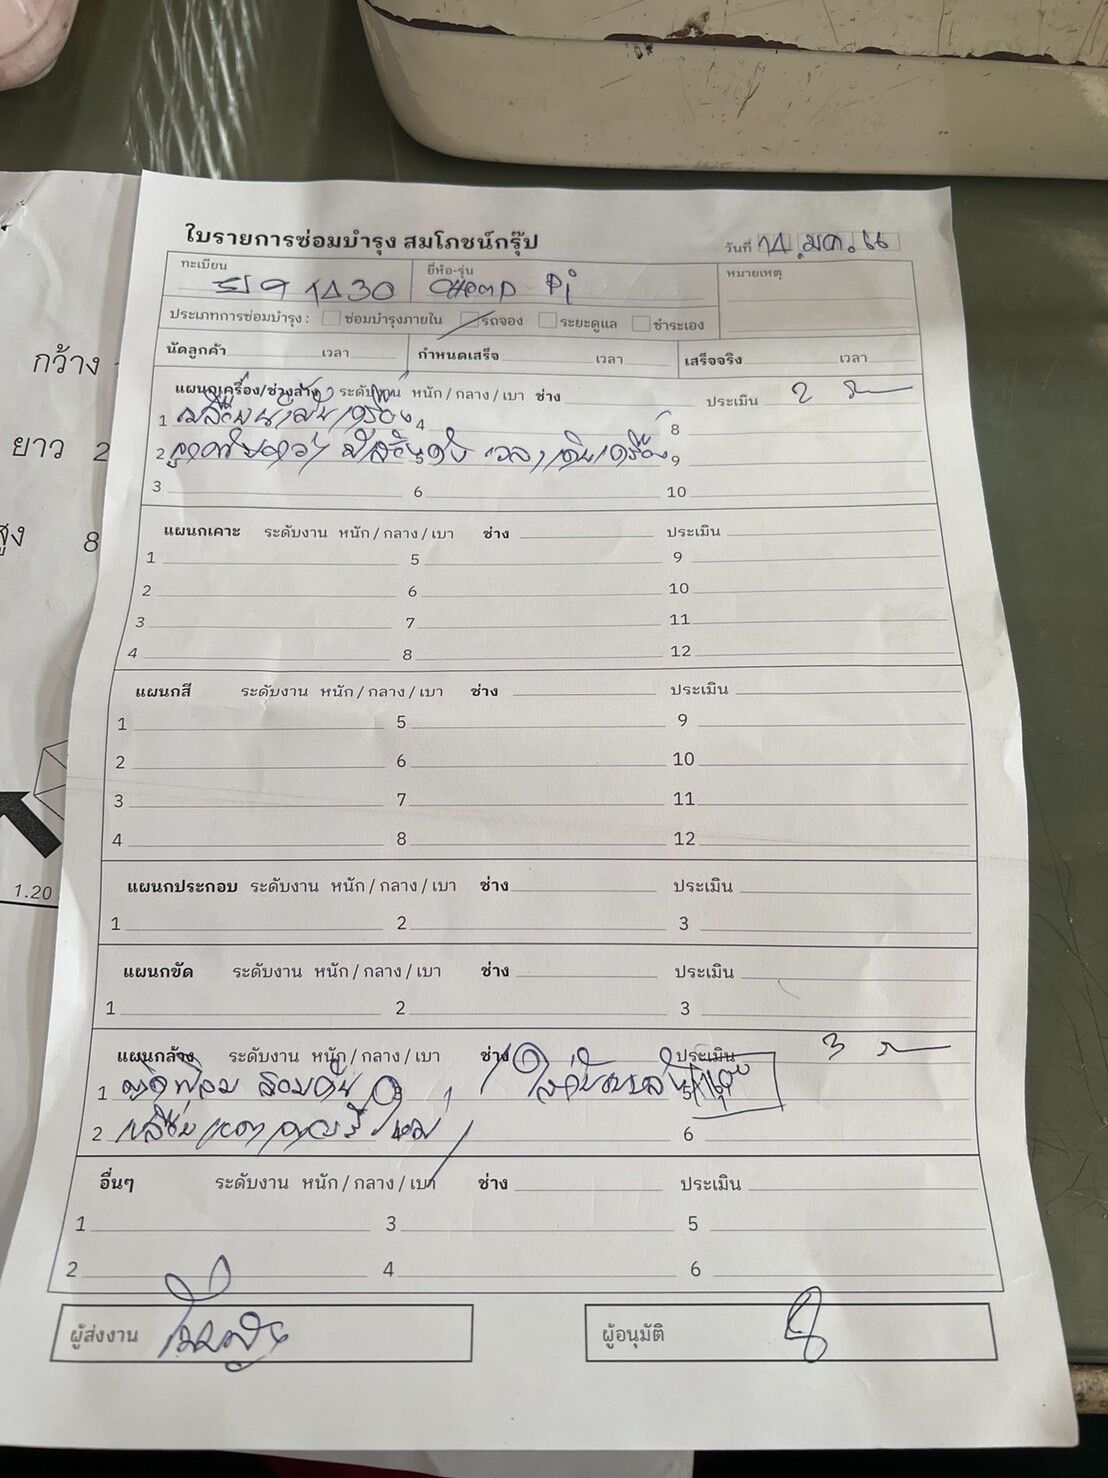 ใบรายการซ่อมบำรุง สมโภชน์กรุ๊ป
วันที่ 14 มค. 66
ทะเบียน 1430
ยี่ห้อ-รุ่น
หมายเหตุ
ประเภทการซ่อมบำรุง : ซ่อมบำรุงภายใน รถจอง ระยะดูแล ชำระเอง
นัดลูกค้า เวลา กำหนดเสร็จ เวลา เสร็จจริง เวลา
แผนกเครื่อง/ช่วงล่าง ระดับงาน หนัก / กลาง / เบา ช่าง ประเมิน 2
1 เปลี่ยนน้ำมันเครื่อง 4 8
2 5 เวลาเดินเครื่อง 9
3 6 10
แผนกเคาะ ระดับงาน หนัก / กลาง / เบา ช่าง ประเมิน
1 5 9
2 6 10
3 7 11
4 8 12
แผนกสี ระดับงาน หนัก / กลาง / เบา ช่าง ประเมิน
1 5 9
2 6 10
3 7 11
4 8 12
แผนกประกอบ ระดับงาน หนัก / กลาง / เบา ช่าง ประเมิน
1 2 3
แผนกขัด ระดับงาน หนัก / กลาง / เบา ช่าง ประเมิน
1 2 3
แผนกล้าง ระดับงาน หนัก / กลาง / เบา ช่าง ประเมิน 3
1 3 5
2 6
อื่นๆ ระดับงาน หนัก / กลาง / เบา ช่าง ประเมิน
1 3 5
2 4 6
ผู้ส่งงาน
ผู้อนุมัติ
กว้าง
ยาว 2
สูง 8
1.20